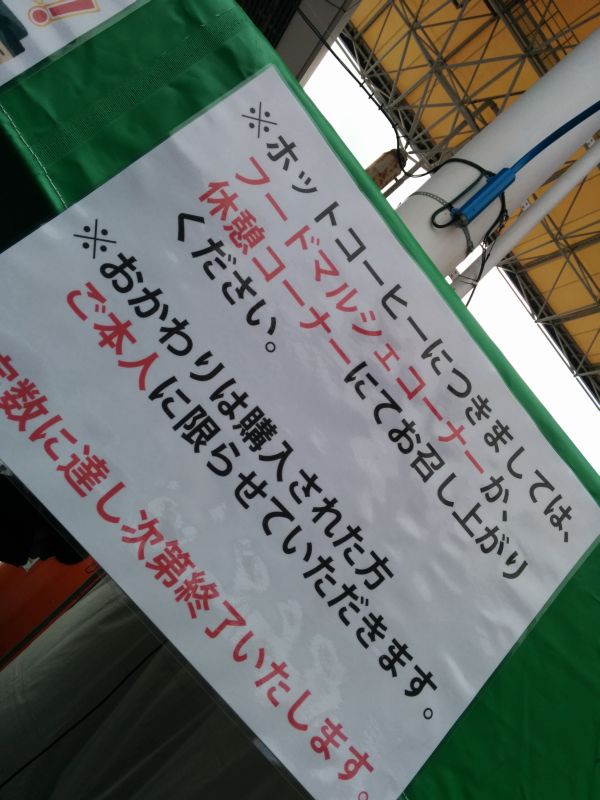 ※ホットコーヒーにつきましては、
フードマルシェコーナーか、
休憩コーナーにてお召し上がり
ください。
※おかわりは購入された方
ご本人に限らせていただきます。
定数に達し次第終了いたします。